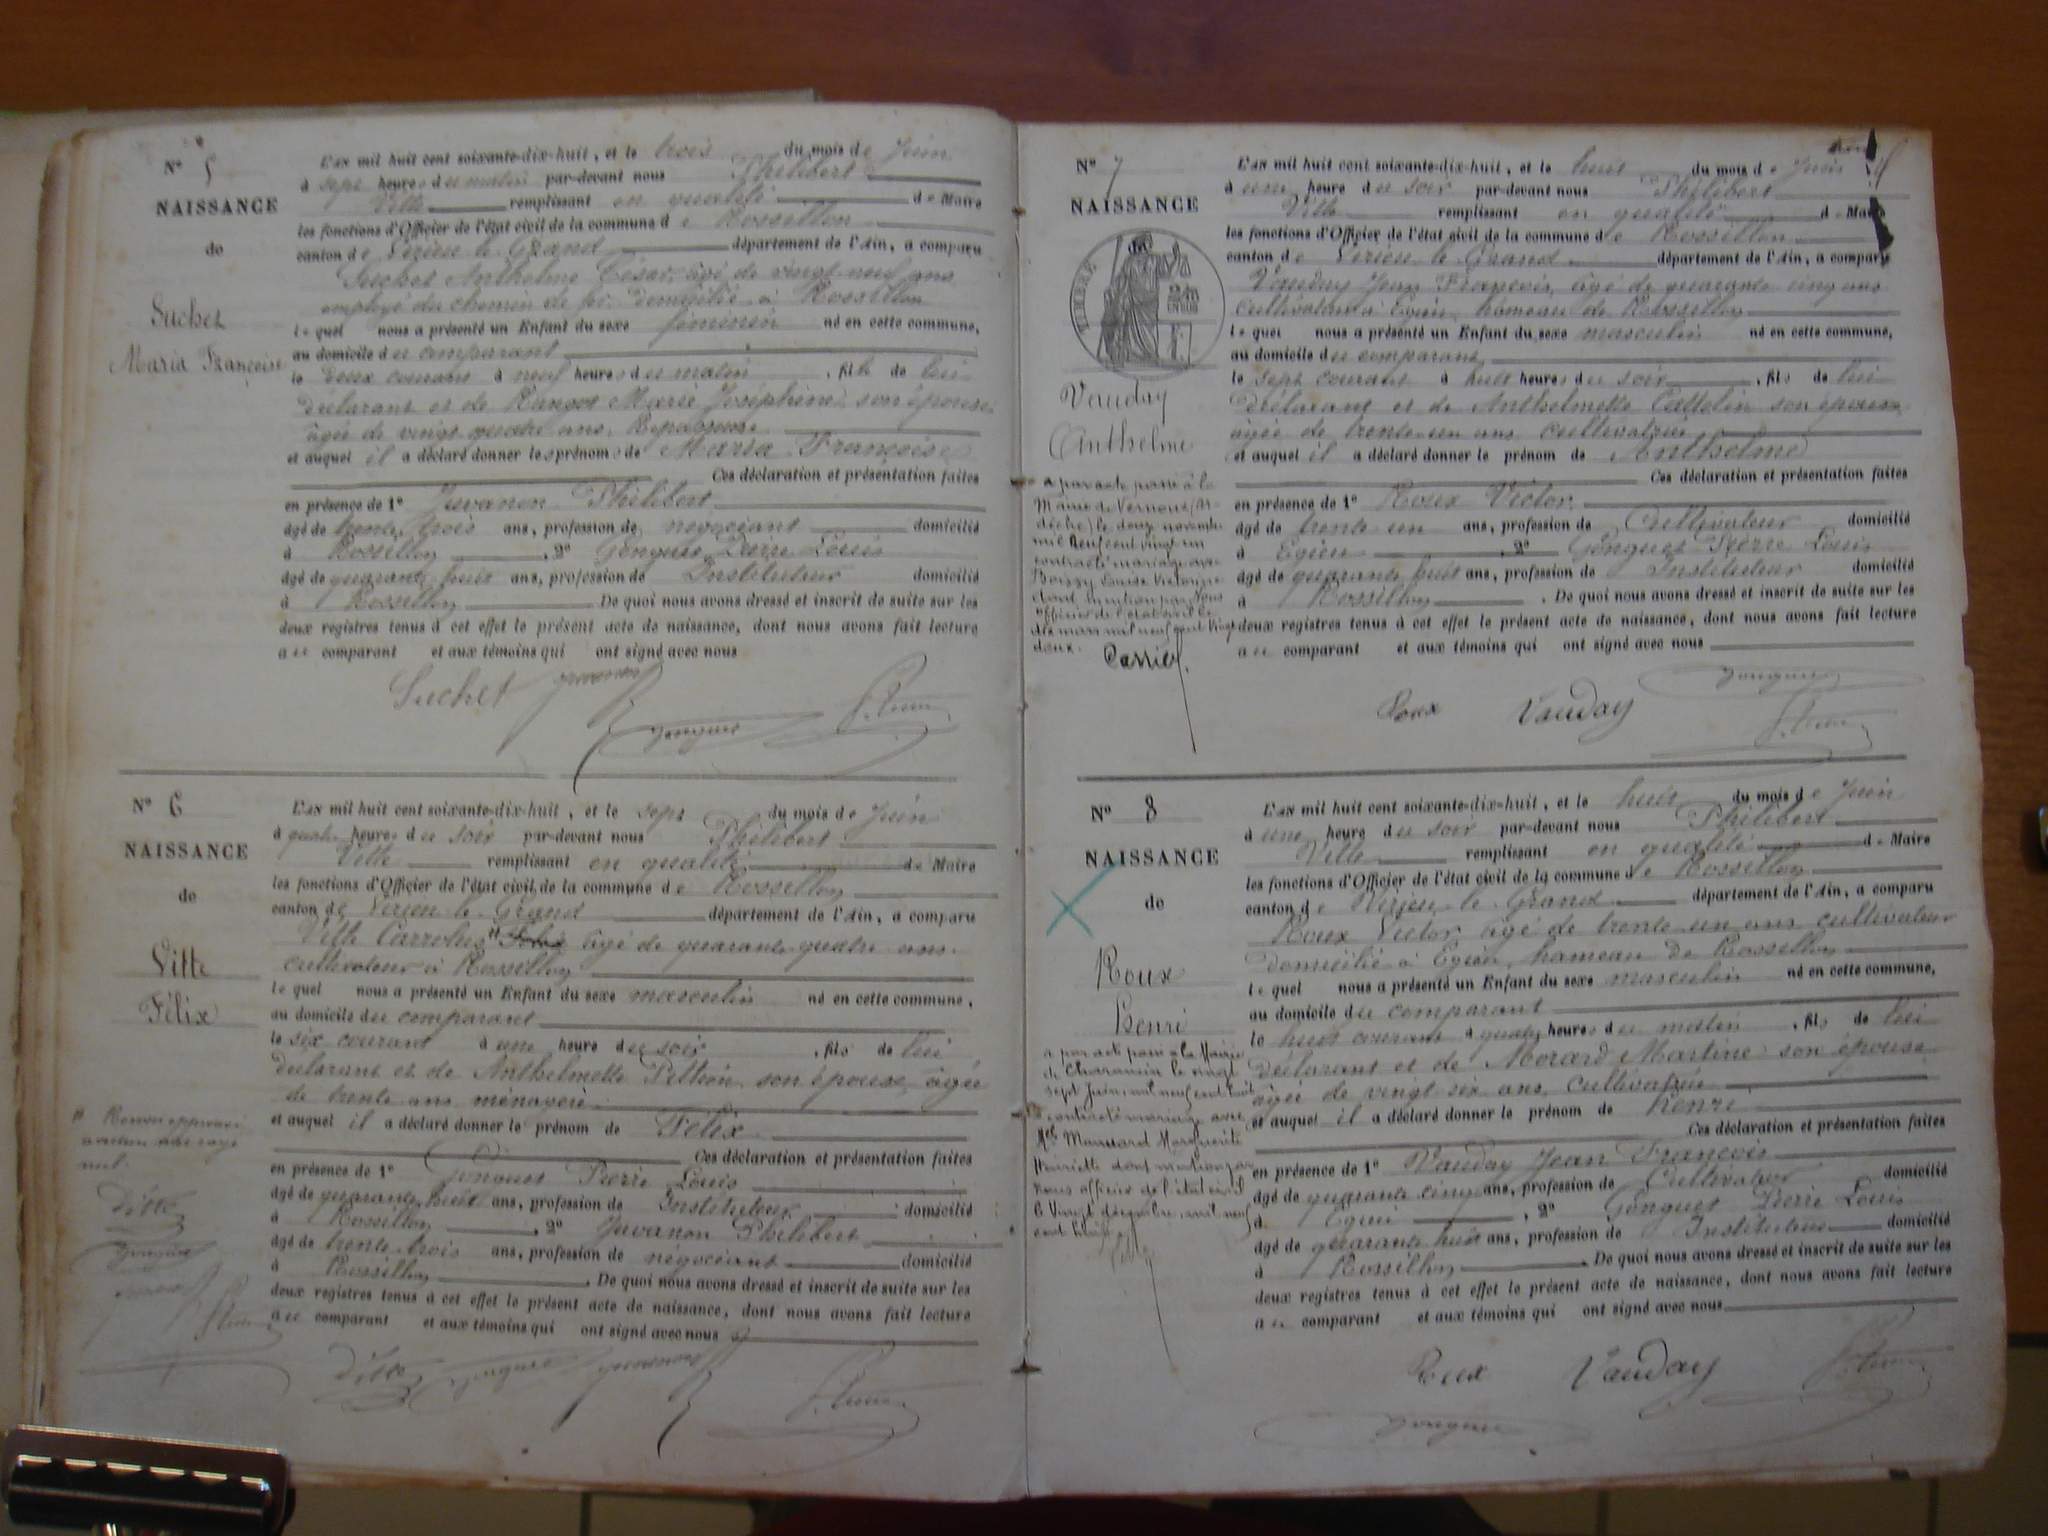 N° 5
NAISSANCE
de
Suchet
Maria Françoise
L'AN mil huit cent soixante-dix-huit, et le trois du mois de Juin
à sept heures du matin par-devant nous Philibert
Vitte remplissant en qualité de Maire
les fonctions d'Officier de l'état civil de la commune de Rossillon
canton de Virieu le Grand département de l'Ain, a comparu
Suchet Anthelme César, âgé de vingt neuf ans
employé du chemin de fer domicilié à Rossillon
lequel nous a présenté un Enfant du sexe féminin né en cette commune,
au domicile du comparant
le deux courant à neuf heures du matin, fille de lui
déclarant et de Marie Joséphine son épouse
âgée de vingt quatre ans,
et auquel il a déclaré donner les prénoms de Maria Françoise
Ces déclaration et présentation faites
en présence de 1° Juvanon Philibert
âgé de trente trois ans, profession de négociant domicilié
à Rossillon, 2° Gonguet Pierre Louis
âgé de quarante huit ans, profession de Instituteur domicilié
à Rossillon De quoi nous avons dressé et inscrit de suite sur les
deux registres tenus à cet effet le présent acte de naissance, dont nous avons fait lecture
au comparant et aux témoins qui ont signé avec nous
Suchet
N° 6
NAISSANCE
de
Vitte
Félix
L'AN mil huit cent soixante-dix-huit, et le sept du mois de Juin
à quatre heures du soir par-devant nous Philibert
Vitte remplissant en qualité de Maire
les fonctions d'Officier de l'état civil de la commune de Rossillon
canton de Virieu le Grand département de l'Ain, a comparu
Vitte âgé de quarante quatre ans
cultivateur à Rossillon
lequel nous a présenté un Enfant du sexe masculin né en cette commune,
au domicile du comparant
le six courant à une heure du soir, fils de lui
déclarant et de Anthelmette son épouse, âgée
de trente ans ménagère
et auquel il a déclaré donner le prénom de Félix
Ces déclaration et présentation faites
en présence de 1° Gonguet Pierre Louis
âgé de quarante huit ans, profession de Instituteur domicilié
à Rossillon, 2° Juvanon Philibert
âgé de trente trois ans, profession de négociant domicilié
à Rossillon. De quoi nous avons dressé et inscrit de suite sur les
deux registres tenus à cet effet le présent acte de naissance, dont nous avons fait lecture
au comparant et aux témoins qui ont signé avec nous
Vitte
N° 7
NAISSANCE
de
TIMBRE
Vauday
Anthelme
a par acte passé à la
Mairie de Vernoux
le deux novembre
mil neuf cent vingt un
contracté mariage avec
Boissy Louise Victorine
dont mention par Nous
officier de l'état civil le
dix mars mil neuf cent vingt
deux.
L'AN mil huit cent soixante-dix-huit, et le huit du mois de Juin
à une heure du soir par-devant nous Philibert
Vitte remplissant en qualité de Maire
les fonctions d'Officier de l'état civil de la commune de Rossillon
canton de Virieu le Grand département de l'Ain, a comparu
Vauday Jean François, âgé de quarante cinq ans
cultivateur à Egieu, hameau de Rossillon
lequel nous a présenté un Enfant du sexe masculin né en cette commune,
au domicile du comparant
le sept courant à huit heures du soir, fils de lui
déclarant et de Anthelmette Cattelin son épouse
âgée de trente un ans cultivatrice
et auquel il a déclaré donner le prénom de Anthelme
Ces déclaration et présentation faites
en présence de 1° Roux Victor
âgé de trente un ans, profession de Cultivateur domicilié
à Egieu, 2° Gonguet Pierre Louis
âgé de quarante huit ans, profession de Instituteur domicilié
à Rossillon. De quoi nous avons dressé et inscrit de suite sur les
deux registres tenus à cet effet le présent acte de naissance, dont nous avons fait lecture
au comparant et aux témoins qui ont signé avec nous
Roux Vauday
N° 8
NAISSANCE
de
Roux
Henri
a par acte passé à la Mairie
de Charancin le vingt
sept Juin mil neuf cent huit
contracté mariage avec
Melle Mannard Marguerite
Henriette dont mention par
nous officier de l'état civil
le vingt décembre, mil neuf
cent huit
L'AN mil huit cent soixante-dix-huit, et le huit du mois de Juin
à une heure du soir par-devant nous Philibert
Vitte remplissant en qualité de Maire
les fonctions d'Officier de l'état civil de la commune de Rossillon
canton de Virieu le Grand département de l'Ain, a comparu
Roux Victor âgé de trente un ans cultivateur
domicilié à Egieu, hameau de Rossillon
lequel nous a présenté un Enfant du sexe masculin né en cette commune,
au domicile du comparant
le huit courant à quatre heures du matin, fils de lui
déclarant et de Morard Martine son épouse
âgée de vingt six ans, cultivatrice
et auquel il a déclaré donner le prénom de Henri
Ces déclaration et présentation faites
en présence de 1° Vauday Jean François
âgé de quarante cinq ans, profession de Cultivateur domicilié
à Egieu, 2° Gonguet Pierre Louis
âgé de quarante huit ans, profession de Instituteur domicilié
à Rossillon. De quoi nous avons dressé et inscrit de suite sur les
deux registres tenus à cet effet le présent acte de naissance, dont nous avons fait lecture
au comparant et aux témoins qui ont signé avec nous
Roux Vauday